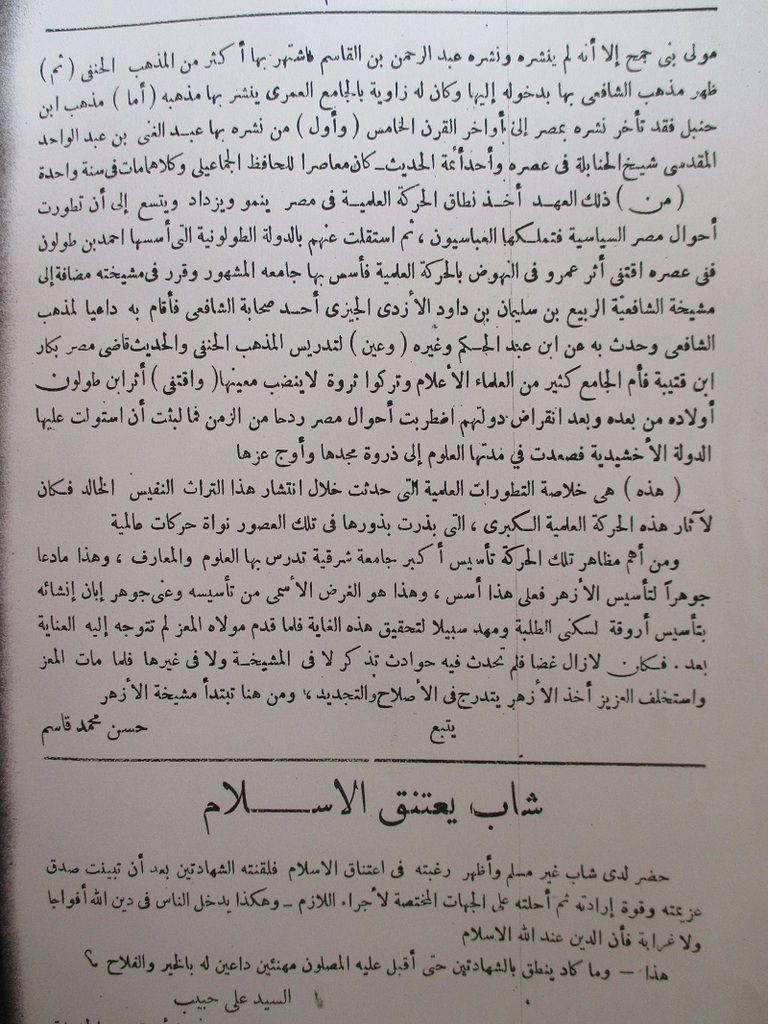 مولى بنى جمح إلا أنه لم ينشره ونشره عبد الرحمن بن القاسم فاشتهر بها أكثر من المذهب الحنفى ( ثم )
ظهر مذهب الشافعى بها بدخوله إليها وكان له زاوية بالجامع العمرى ينشر بها مذهبه ( أما ) مذهب ابن
حنبل فقد تأخر نشره بمصر إلى أواخر القرن الخامس ( وأول ) من نشره بها عبد الغنى بن عبد الواحد
المقدسى شيخ الحنابلة فى عصره وأحد أئمة الحديث ــ كان معاصرا للحافظ الجماعيلى وكلاهما مات فى سنة واحدة
( من ) ذلك العهد أخذ نطاق الحركة العلمية فى مصر ينمو ويزداد ويتسع إلى أن تطورت
أحوال مصر السياسية فتملكها العباسيون ، ثم استقلت عنهم بالدولة الطولونية التى أسسها احمد بن طولون
ففى عصره اقتفى أثر عمرو فى النهوض بالحركة العلمية فأسس بها جامعه المشهور وقرر فى مشيخته مضافة إلى
مشيخة الشافعية الربيع بن سليمان بن داود الأزدى الجيزى أحد صحابة الشافعى فأقام به داعيا لمذهب
الشافعى وحدث به عن ابن عبد الحكم وغيره ( وعين ) لتدريس المذهب الحنفى والحديث قاضى مصر بكار
ابن قتيبة فأم الجامع كثير من العلماء الأعلام وتركوا ثروة لا ينضب معينها ( واقتفى ) أثر ابن طولون
أولاده من بعده وبعد انقراض دولتهم اضطربت أحوال مصر ردحا من الزمن فما لبثت أن استولت عليها
الدولة الأخشيدية فصعدت في مدتها العلوم إلى ذروة مجدها وأوج عزها
( هذه ) هى خلاصة التطورات العلمية التى حدثت خلال انتشار هذا التراث النفيس الخالد فكان
لآثار هذه الحركة العلمية الكبرى ، التى بذرت بذورها فى تلك العصور نواة حركات عالمية
ومن أهم مظاهر تلك الحركة تأسيس أكبر جامعة شرقية تدرس بها العلوم والمعارف ، وهذا مادعا
جوهرآ لتأسيس الأزهر فعلى هذا أسس ، وهذا هو الغرض الأسمى من تأسيسه وعنى جوهر إبان إنشائه
بتأسيس أروقة لسكنى الطلبة ومهد سبيلا لتحقيق هذه الغاية فلما قدم مولاه المعز لم تتوجه إليه العناية
بعد . فكان لازال غضا فلم تحدث فيه حوادث تذكر لا فى المشيخة ولا فى غيرها فلما مات المعز
واستخلف العزيز أخذ الأزهر يتدرج فى الأصلاح والتجديد ، ومن هنا تبتدأ مشيخة الأزهر
يتبع حسن محمد قاسم
شاب يعتنق الاسلام
حضر لدى شاب غير مسلم وأظهر رغبته فى اعتناق الاسلام فلقنته الشهادتين بعد أن تبينت صدق
عزيمته وقوة إرادته ثم أحلته على الجهات المختصة لأجراء اللازم ــ وهكذا يدخل الناس فى دين الله أفواجا
ولا غرابة فأن الدين عند الله الاسلام
هذا ــ وما كاد ينطق بالشهادتين حتى أقبل عليه المصلون مهنئين داعين له بالخير والفلاح ؟
السيد على حبيب